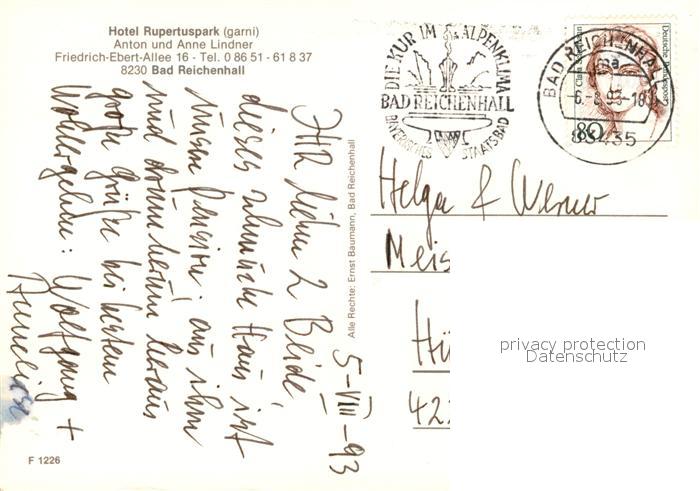 Hotel Rupertuspark (garni)
Anton und Anne Lindner
Friedrich-Ebert-Allee 16 - Tel. 0 86 51 - 61 8 37
8230 Bad Reichenhall
DIE KUR IM ALPENKLIMA
BAD REICHENHALL
BAYERISCHES STAATSBAD
BAD REICHENHALL
6.-8.93-18
83435
Deutsche Bundespost
Clara Schumann
80
5-VIII-93
Ihr lieben 2 Beide,
dieses schmucke Haus ist
unsere Pension; aus ihm
und drum herum heraus
große Grüße bei bestem
Wohlergehen: Wolfgang +
Anneliese
Alle Rechte: Ernst Baumann, Bad Reichenhall
Helga & Werner
Meis
Hü
422
privacy protection
Datenschutz
F 1226